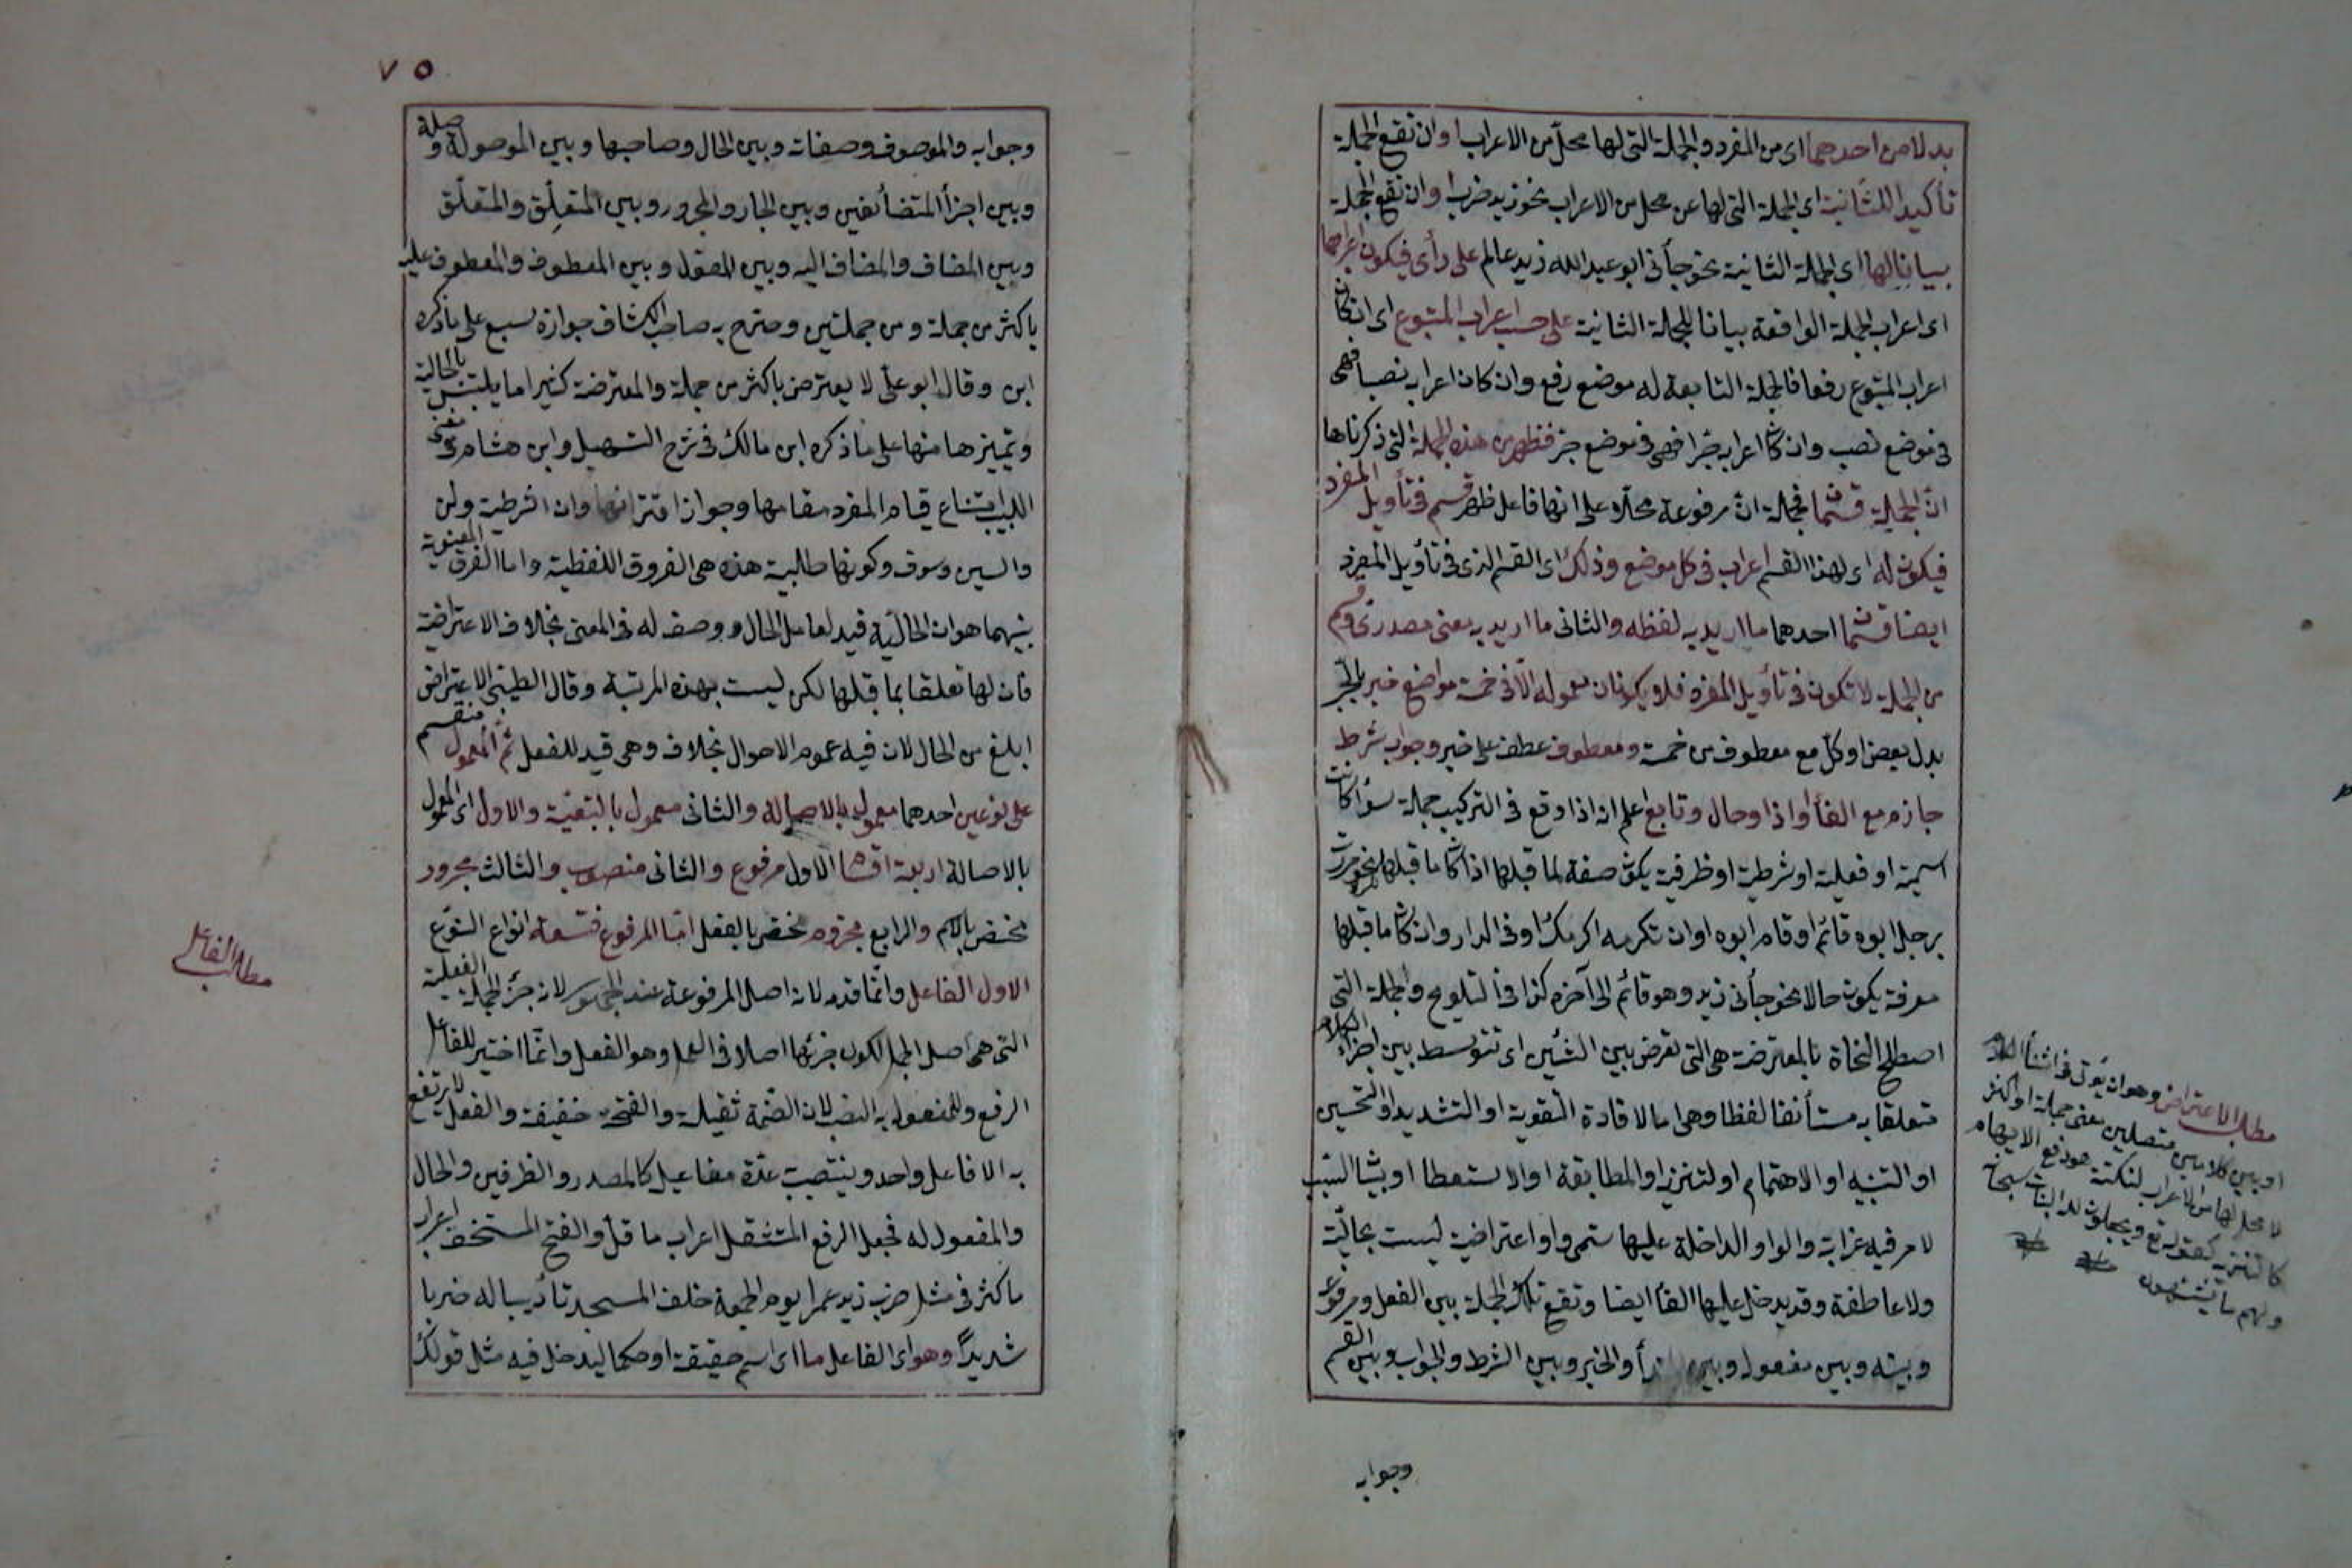 بدلا من احدهما اى من المفرد والجملة التى لها محل من الاعراب او ان تقع الجملة
تأكيدا للثانية اى الجملة التى لها عن محل من الاعراب نحو زيد ضرب او ان تقع الجملة
بيانا لها اى الجملة الثانية نحو جأنى ابو عبد الله زيد عالم على رأى فيكون اعرابها
اى اعراب الجملة الواقعة بيانا للجملة الثانية على حسب اعراب المتبوع اى ان كان
اعراب المتبوع رفعا فالجملة التابعة له موضع رفع وان كان اعرابه نصبا فهى
فى موضع نصب وان كان اعرابه جرا فهى فى موضع جر فظهر من هذه الجملة التى ذكرناها
ان الجملة قسمان فجملة ان مرفوعة محلا على انها فاعل ظهر قسم فى تأويل المفرد
فيكون له اى لهذا القسم اعراب فى كل موضع وذلك اى القسم الذى فى تأويل المفرد
ايضا قسمان احدهما ما اريد به لفظه والثانى ما اريد به معنى مصدرى وقسم
من الجملة لا تكون فى تأويل المفرد فلا يكونان معموله الا فى خمسة مواضع خبر
بدل بعض او كل مع معطوف من خمسة ومعطوف عطف على خبر وجواب شرط
جازم مع الفأ او اذا وحال وتابع اعلم انه اذا وقع فى التركيب جملة سوأ كانت
اسمية او فعلية او شرطية او ظرفية يكون صفة لما قبلها اذا كان ما قبلها نكرة نحو مررت
برجل ابوه قائم او قام ابوه او ان تكرمه اكرمك او فى الدار وان كان ما قبلها
معرفة يكون حالا نحو جأنى زيد وهو قائم الى آخره كذا فى التلويح والجملة التى
اصطلح النحاة بالمعترضة هى التى تعرض بين الشئين اى تتوسط بين اجزاء الكلام
متعلقا به مستأنفا لفظا وهى اما لافادة التقوية او التشديد او التحسين
او التنبيه او الاهتمام او لتنزيه او المطابقة او الاستعطا او بيان السبب
لامر فيه غرابة والواو الداخلة عليها سمى واو اعتراضية ليست بحالية
ولا عاطفة وقد يدخل عليها الفأ ايضا وتقع تلك الجملة بين الفعل ومرفوعه
وبينه وبين مفعول وبين والخبر وبين الشرط والجواب وبين القسم
وجوابه
مطلب الاعتراض وهو ان يؤتى فى اثنأ الكلام
او بين كلامين متصلين معنى جملة او اكثر
لا محل لها من الاعراب لنكتة هو دفع الايهام
كالتنزيه كقوله تع ويجعلون لله البنات سبحانه
ولهم ما يشتهون
٧٥
وجوابه والموصوف وصفاته وبين الحال وصاحبها وبين الموصولة وصلة
وبين اجزأ المتضائفين وبين الجار والمجرور وبين المتعلِّق والمتعلَّق
وبين المضاف والمضاف اليه وبين المقول وبين المعطوف والمعطوف عليه
باكثر من جملة ومن جملتين وصرح به صاحب الكشاف جوازه سبع على ما ذكره
ابن وقال ابو على لا يعترض باكثر من جملة والمعترضة كثيرا ما يلتبس بالحالية
وتمييزها منها على ما ذكره ابن مالك فى شرح التسهيل وابن هشام فى مغنى
اللبيب امتناع قيام المفرد مقامها وجواز اقترانها وان الشرطية ولن
والسين وسوف وكونها طالبية هذه هى الفروق اللفظية واما الفرق المعنوية
بينهما هو ان الحالية قيد لعامل الحال ووصف له فى المعنى بخلاف الاعتراضية
فان لها تعلقا بما قبلها لكن ليست بهذه المرتبة وقال الطيبى الاعتراض
ابلغ من الحال لان فيه عموم الاحوال بخلاف وهى قيد للفعل ثم المعمول منقسم
على نوعين احدهما معمول بالاصالة والثانى معمول بالتبعية والاول اى المعمول
بالاصالة اربعة اقسام الاول مرفوع والثانى منصوب والثالث مجرور
مختص بالاسم والرابع مجزوم مختص بالفعل اما المرفوع فتسعة انواع النوع
الاول الفاعل وانما قدم لانه اصل المرفوعة عند الجمهور لانه جزء الجملة الفعلية
التى هى اصل الجمل لكون جزئها اصلا فى العمل وهو الفعل وانما اختير للفاعل
الرفع وللمفعول به النصب لان الضمة ثقيلة والفتحة خفيفة والفعل لا يرتفع
به الا فاعل واحد وينتصب عدة مفاعيل كالمصدر والظرفين والحال
والمفعول له فجعل الرفع المستثقل اعراب ما قل والفتح المستخف اعراب
ما كثر فى مثل ضرب زيد عمرا يوم الجمعة خلف المسجد تأديبا له ضربا
شديدًا وهو اى الفاعل ما اى اسم حقيقة او حكما ليدخل فيه مثل قولك
مطلب الفاعل